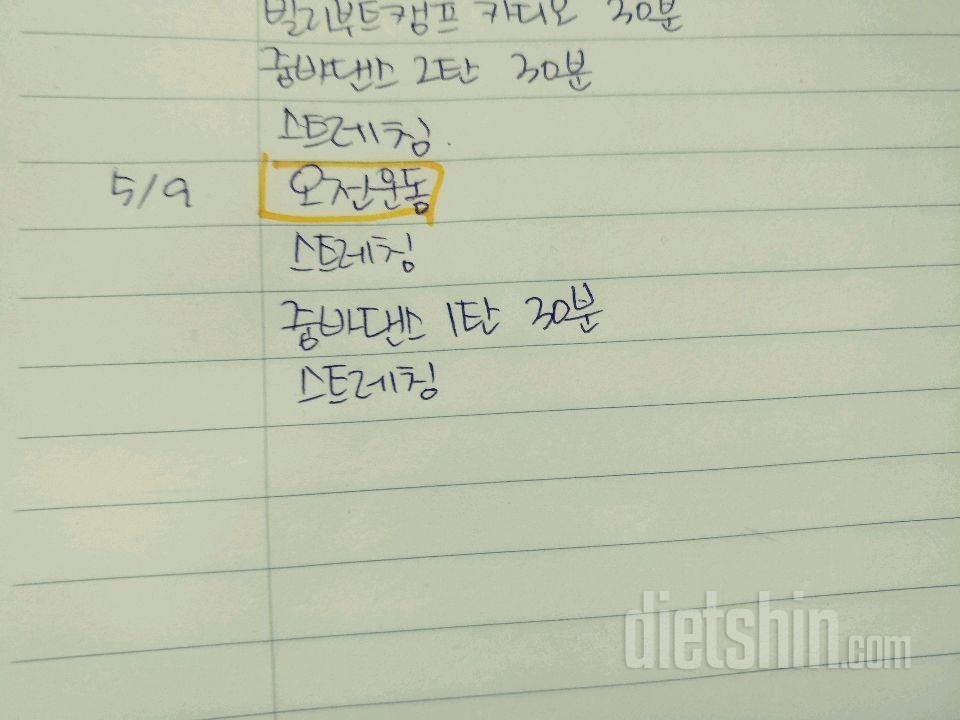 빌리부트캠프 카디오 30분
줌바댄스 2탄 30분
스트레칭.
5/9 오전운동
스트레칭
줌바댄스 1탄 30분
스트레칭
dietshin.com